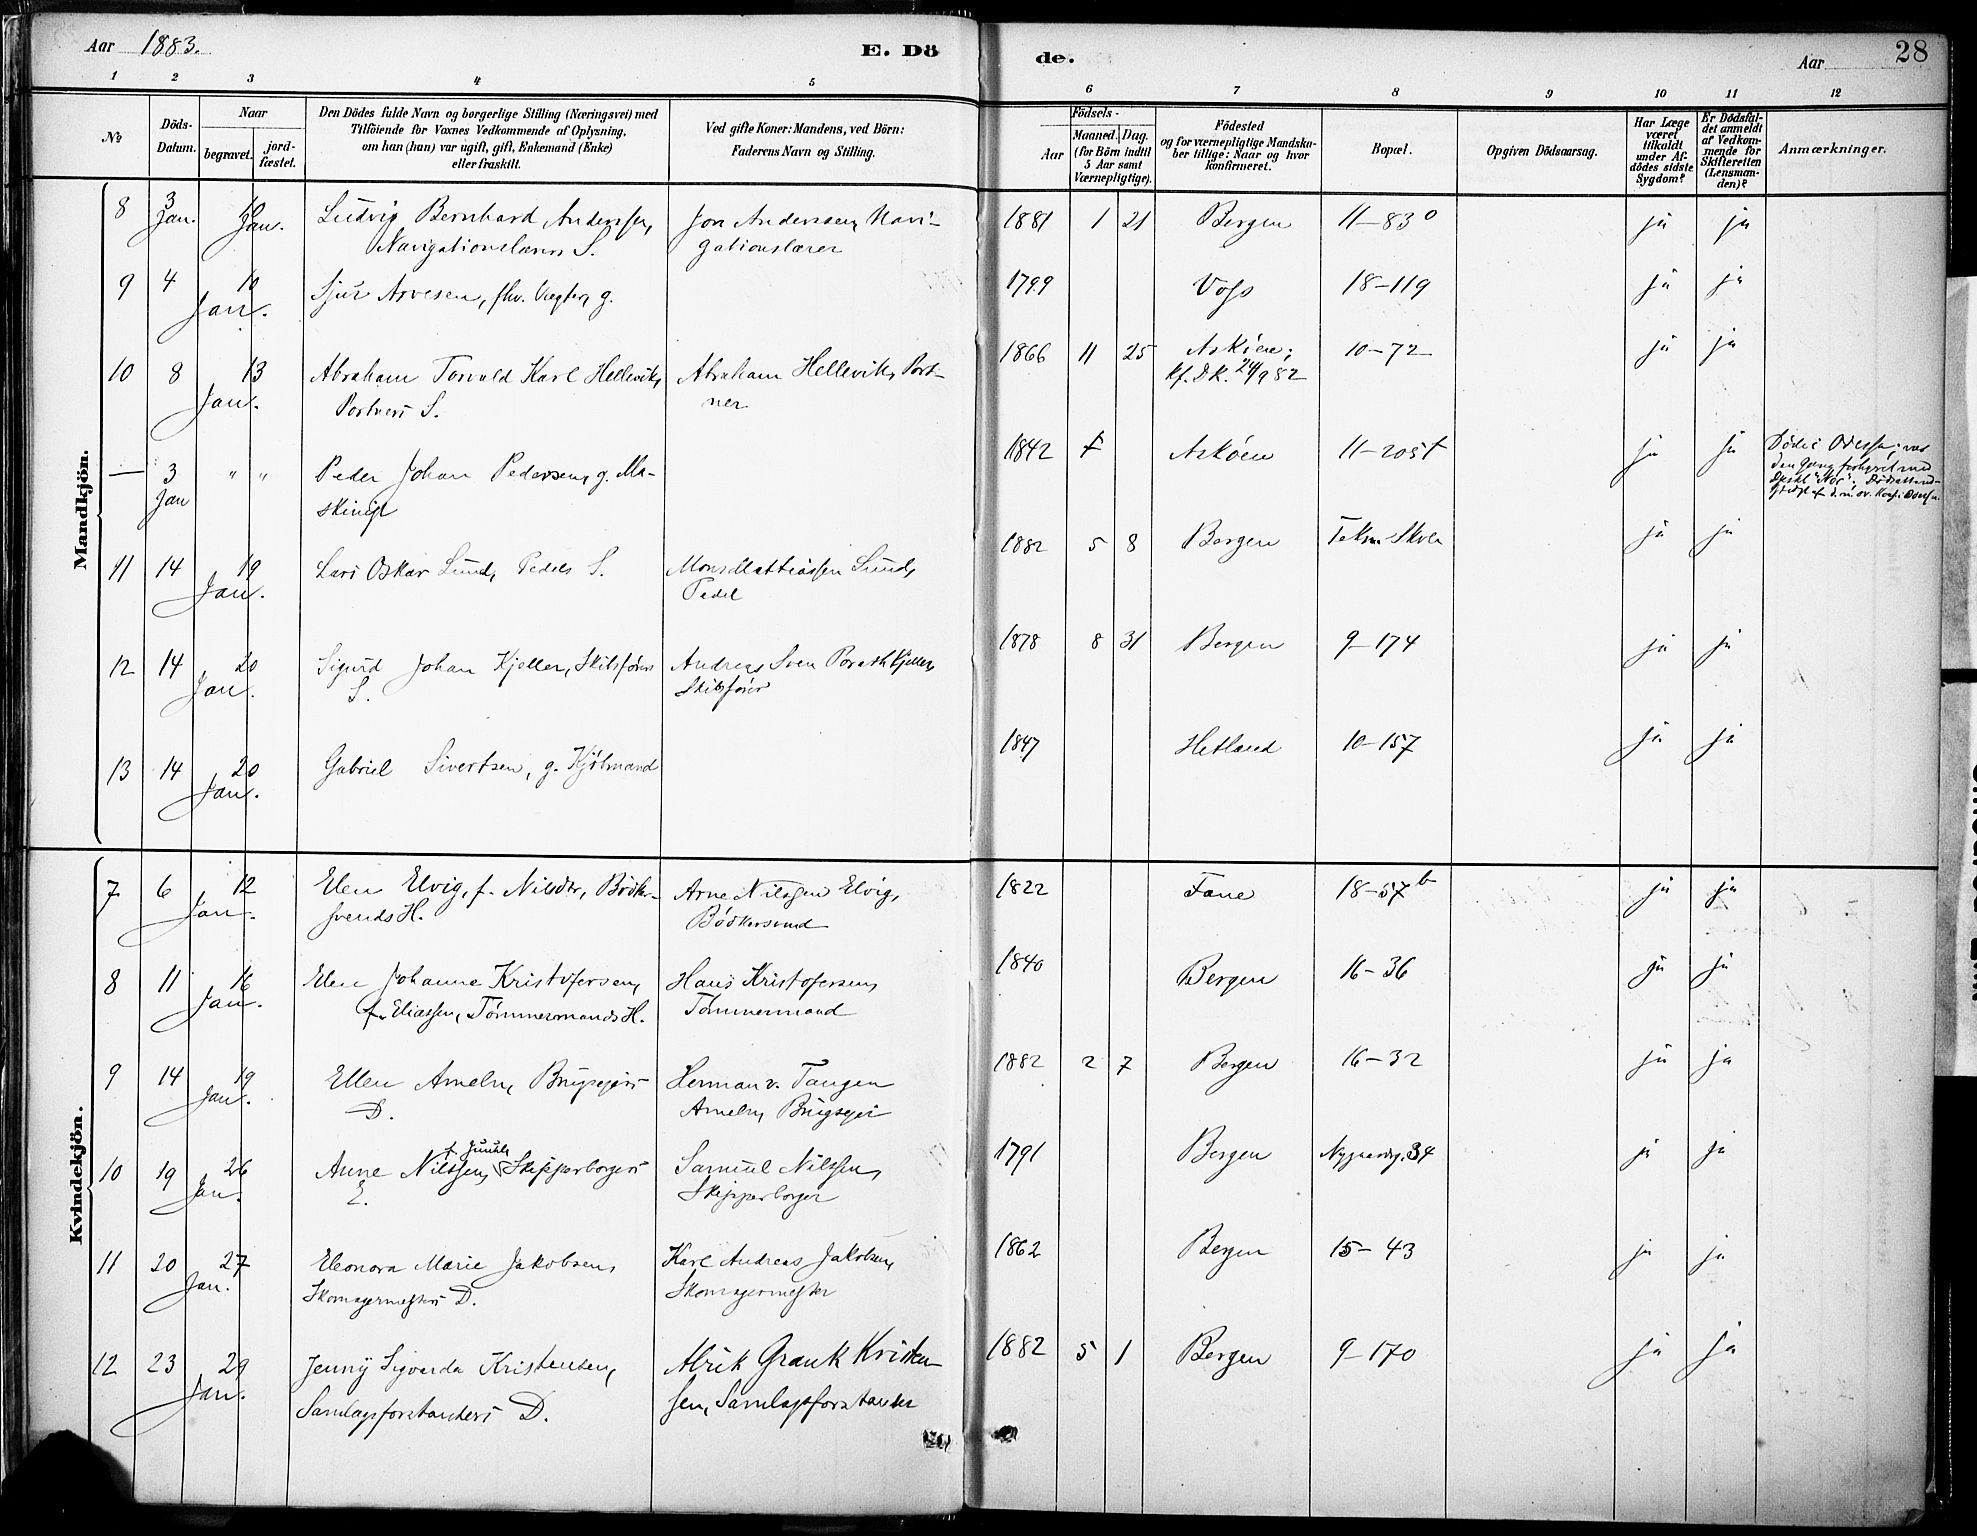 Aar 1883. E. Dö de. Aar 28
1 2 3 4 5 6 7 8 9 10 11 12
No
Döds-
Datum.
Naar
begravet.
jord-
fæstet.
Den Dödes fulde Navn og borgerlige Stilling (Næringsvei) med
Tilföiende for Voxnes Vedkommende af Oplysning,
om han (hun) var ugift, gift, Enkemand (Enke)
eller fraskilt.
Ved gifte Koner: Mandens, ved Börn:
Faderens Navn og Stilling.
Födsels-
Aar
Maaned. Dag.
(for Börn indtil
5 Aar samt
Værnepligtige).
Födested
og for værnepligtige Mandska-
ber tillige: Naar og hvor
konfirmeret.
Bopæl.
Opgiven Dödsaarsag.
Har Læge
været
tilkaldt
under Af-
dödes sidste
Sygdom?
Er Dödsfal-
det anmeldt
af Vedkom-
mende for
Skifteretten
(Lensman-
den)?
Anmærkninger.
Mandkjön.
8 3 Jan. 10 Jan. Ludvig Bernhard Anderssen, Jon Anderssen, Navi- 1881 1 21 Bergen 11-83 ja ja
Navigationslærers S. gationslærer
9 4 10 Jan. Sjur Arvesen, fhv. Vægter, g. 1799 Voss 18-119 ja ja
10 8 13 Jan. Abraham Torvald Karl Hellevik, Abraham Hellevik, Port- 1866 11 25 Askøen; 10-72 ja ja
Portners S. ner kf. DK. 24/9 82
— 3 Jan " " Peder Johan Pedersen, g. Ma- 1842 Askøen 11-205 ja ja Døde i Odessa; var
skinist
den Gang forhyret med
11 14 19 Jan. Lars Oskar Lund, Pedels S. Mons Mattiassen Lund, 1882 5 8 Bergen Tekn. Skole ja ja
Pedel
12 14 20 Jan. Sigurd Johan Kjeller, Skibsførers Andreas Sven Porath Kjeller, 1878 8 31 Bergen 9-174 ja ja
S. Skibsfører
13 14 20 Jan. Gabriel Sivertsen, g. Kjølmand 1847 Hetland 10-157 ja ja
Kvindekjön.
7 6 12 Jan. Elen Elvig, f. Nilsdtr, Bødker- Arne Nilssen Elvig, 1822 Fane 18-57 b ja ja
svends H. Bødkersvend
8 11 16 Jan. Elen Johanne Kristofersen, Hans Kristofersen, 1840 Bergen 16-36 ja ja
f. Eliassen, Tømmermands H. Tømmermand
9 14 19 Jan. Ellen Ameln, Brugseiers Herman v. Tangen 1882 2 7 Bergen 16-32 ja ja
D. Ameln, Brugseier
10 19 26 Jan. Anne Nilssen, Skipperborgers Samuel Nilssen, 1791 Bergen Nygaardsg. 34 ja ja
E. Skipperborger
11 20 27 Jan. Eleonora Marie Jakobsen, Karl Andreas Jakobsen, 1862 Bergen 15-43 ja ja
Skomagermesters D. Skomagermester
12 23 29 Jan. Jenny Sigvarda Kristensen, Alrik Grank Kristen- 1882 5 1 Bergen 9-170 ja ja
Samlagsforstanders D. sen, Samlagsforstander